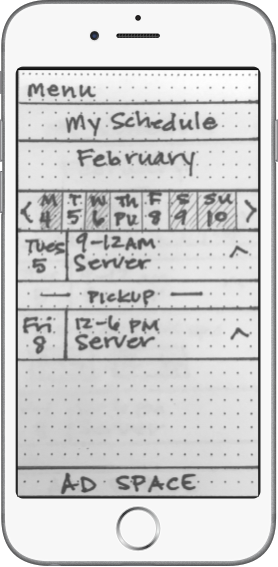 Menu
My Schedule
February
< M T W Th F S Su >
4 5 6 PU 8 9 10
Tues 9-12AM
5 Server
PICKUP
Fri 12-6 PM
8 Server
AD SPACE